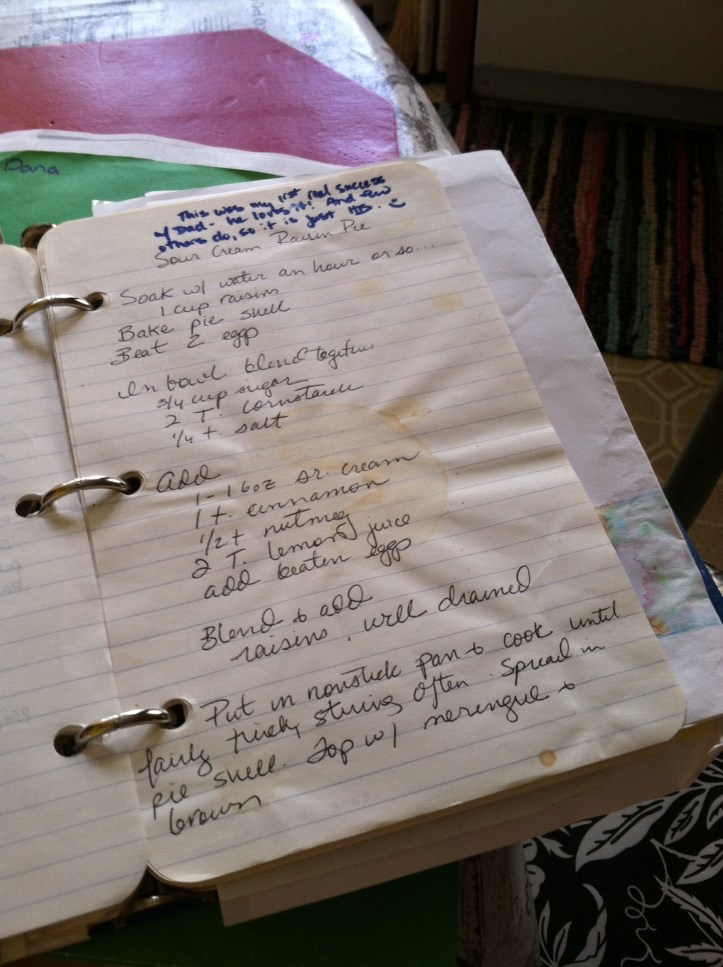 Dana
This was my 1st real success
w/ Dad - he loves it! And few
others do, so it is just HIS.
Sour Cream Raisin Pie
Soak w/ water an hour or so...
1 cup raisins
Bake pie shell
Beat 2 eggs
In bowl blend together
3/4 cup sugar
2 T. cornstarch
1/4 t. salt
Add
1 - 16oz sr. cream
1 t. cinnamon
1/2 t nutmeg
2 T. lemon juice
add beaten eggs
Blend & add
raisins, well drained
Put in nonstick pan & cook until
fairly thick, stirring often. Spread in
pie shell. Top w/ meringue &
brown